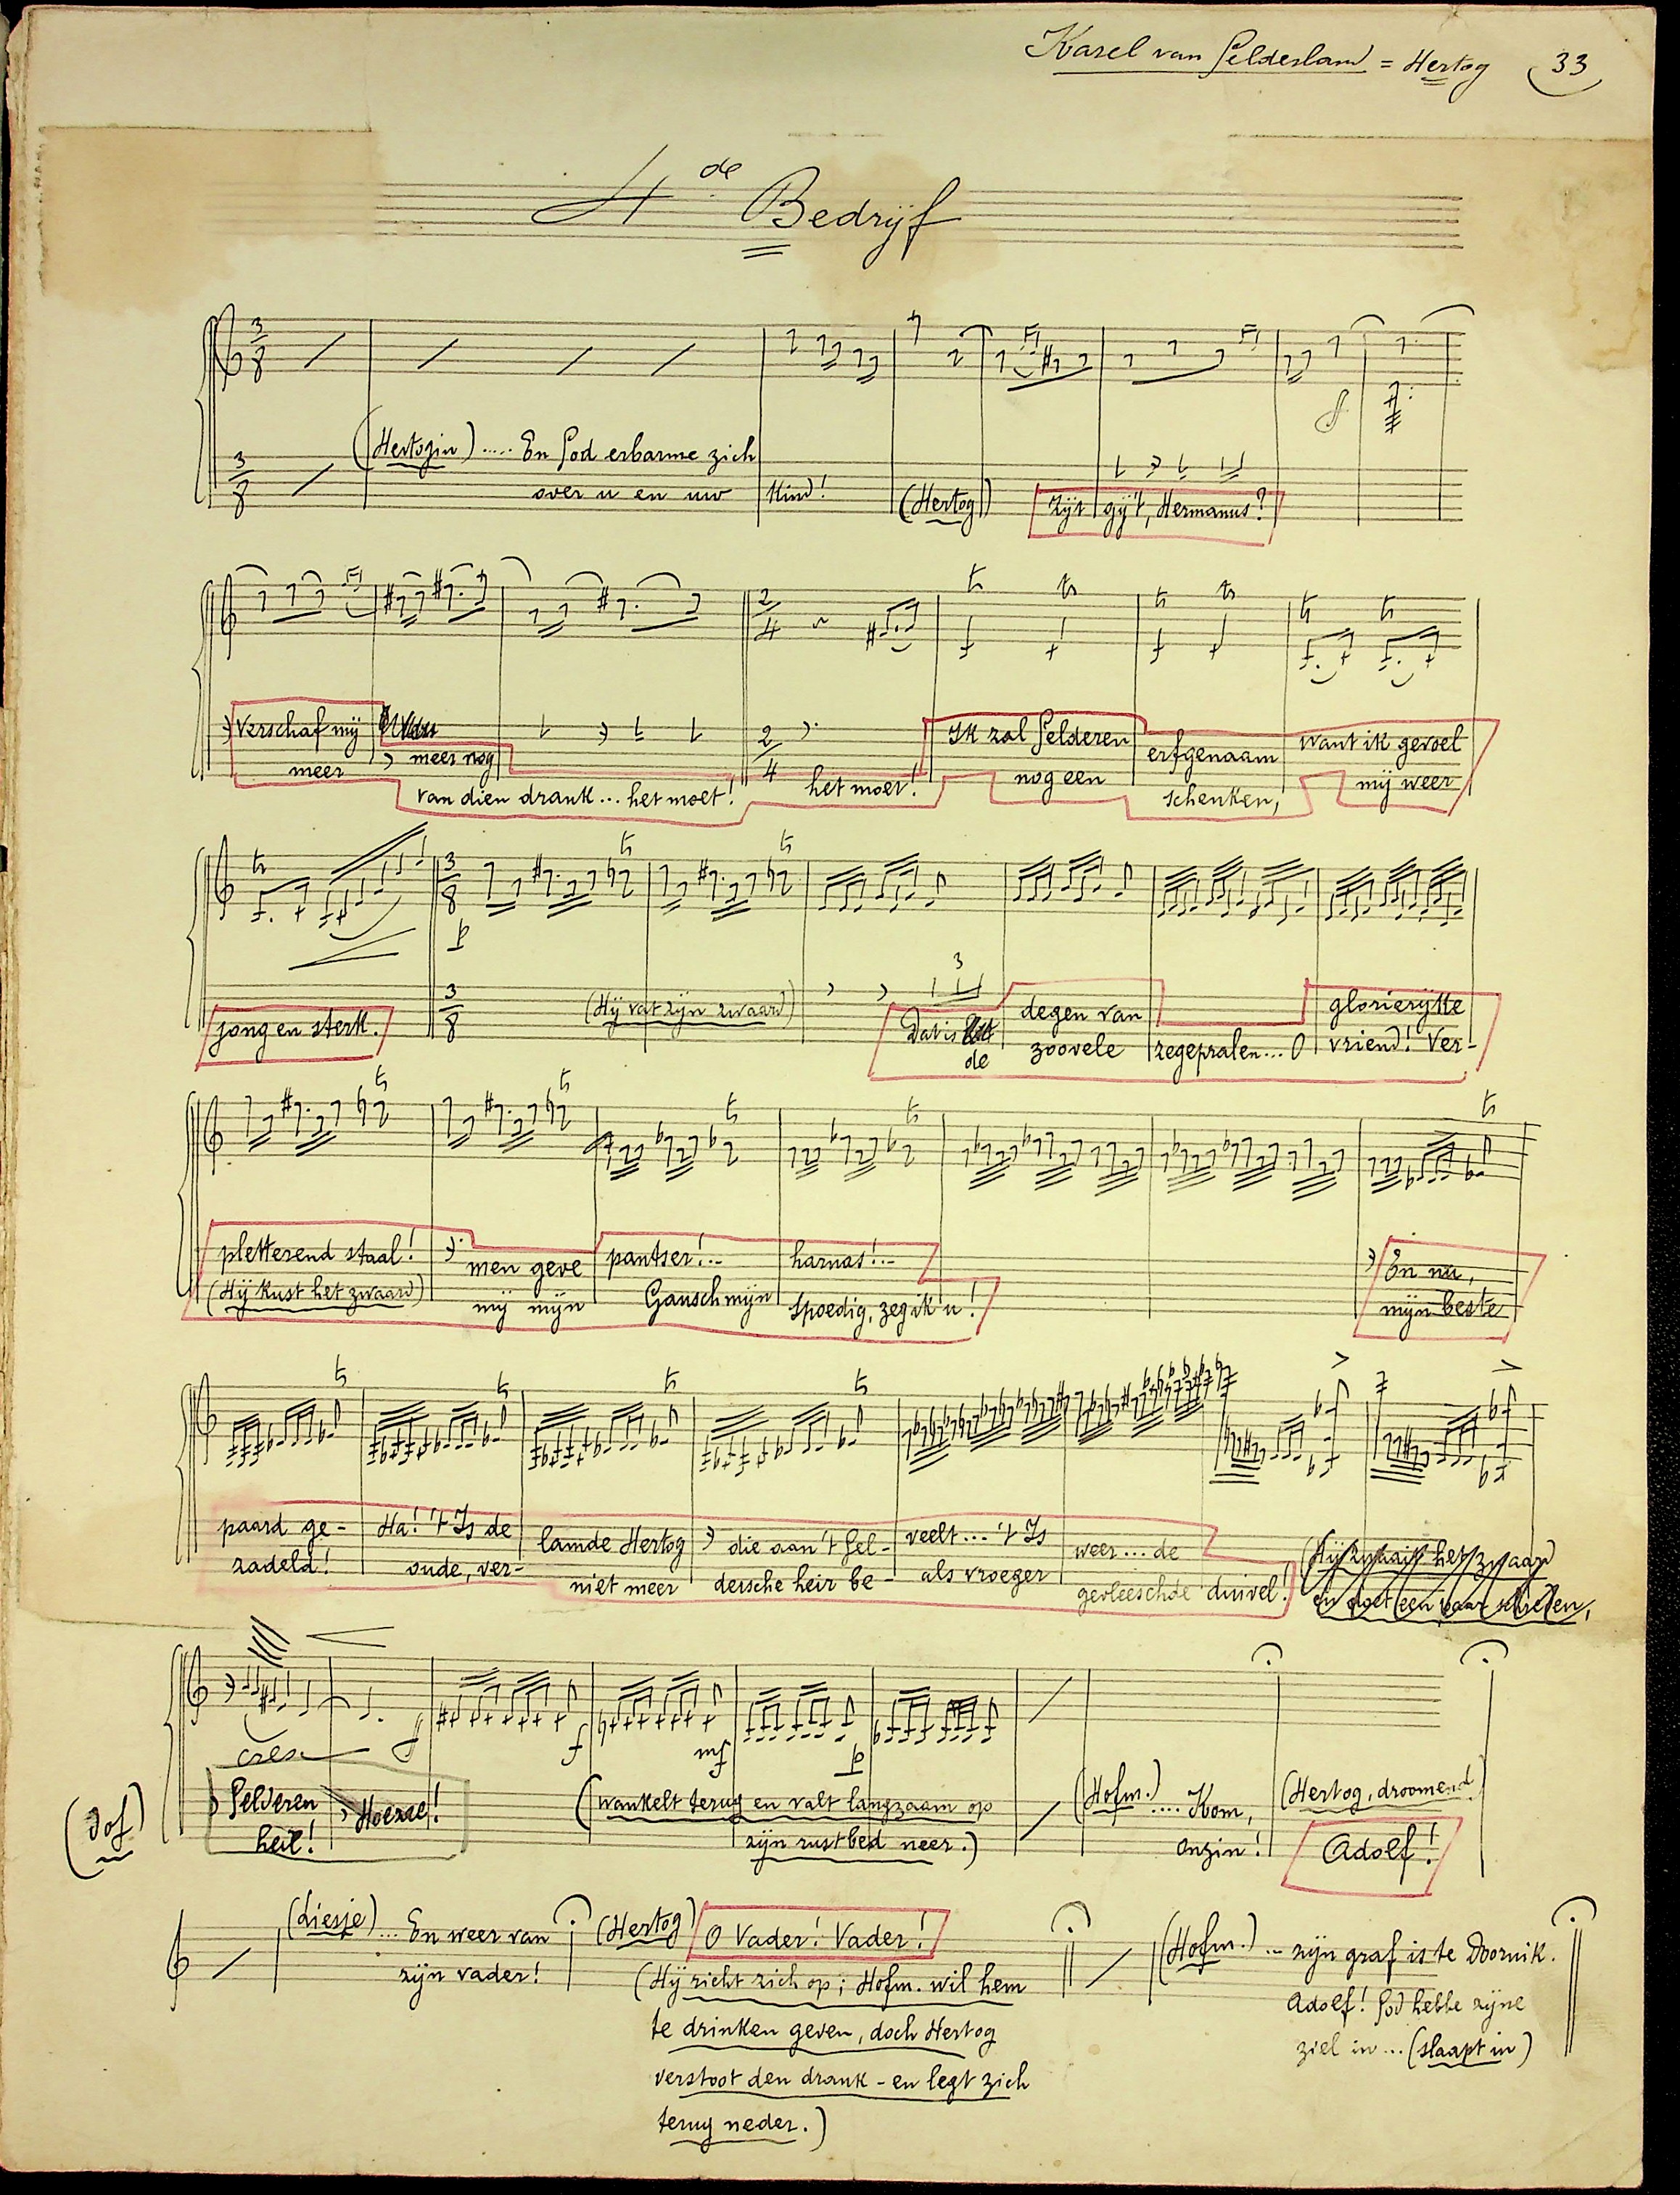 Karel van Gelderland = Hertog 33
4de Bedrijf
(Hertogin) ..... En God erbarme zich
over u en uw kind!
(Hertog) Zijt gij 't, Hermanus?
Verschaf mij
meer
meer nog
van dien drank... het moet! het moet!
Ik zal Gelderen
nog een
erfgenaam
schenken,
want ik gevoel
mij weer
jong en sterk.
(Hij vat zijn zwaard)
Dat is
de
degen van
zoovele
zegepralen... O
glorierijke
vriend! Ver-
pletterend staal!
(Hij kust het zwaard)
men geve
mij mijn
pantser!..
Gansch mijn
harnas!..
Spoedig, zeg ik u!
En nu,
mijn beste
paard ge-
zadeld!
Ha! 't Is de
oude, ver-
lamde Hertog
niet meer
die aan 't Gel-
dersche heir be-
veelt... 't Is
als vroeger
weer... de
gevleeschde duivel!
(Hij zwaait het zwaard
en doet een paar schreden,
cres
(Dof)
Gelderen
heil!
Hoezee!
f mf p
(wankelt terug en valt langzaam op
zijn rustbed neer.)
(Hofm.).... Kom,
onzin!
(Hertog, droomend)
Adolf!
(Liesje)... En weer van
zijn vader!
(Hertog) O Vader! Vader!
(Hij richt zich op; Hofm. wil hem
te drinken geven, doch Hertog
verstoot den drank - en legt zich
terug neder.)
(Hofm.) ... zijn graf is te Doornik.
Adolf! God hebbe zijne
ziel in... (slaapt in)